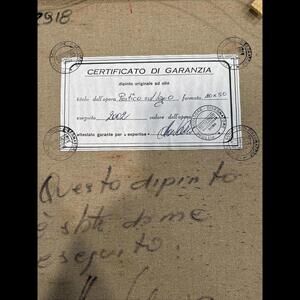 7918
CERTIFICATO DI GARANZIA
dipinto originale ad olio
titolo dell'opera Portico sul lago formato 40x50
eseguito 2002 valore dell'opera
attestato garante per expertise
Questo dipinto
è stato da me
eseguito.